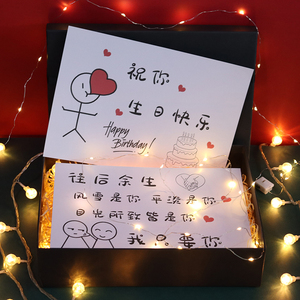 祝你
生日快乐
Happy
Birthday!
往后余生
风雪是你 平淡是你
目光所致皆是你
我只要你